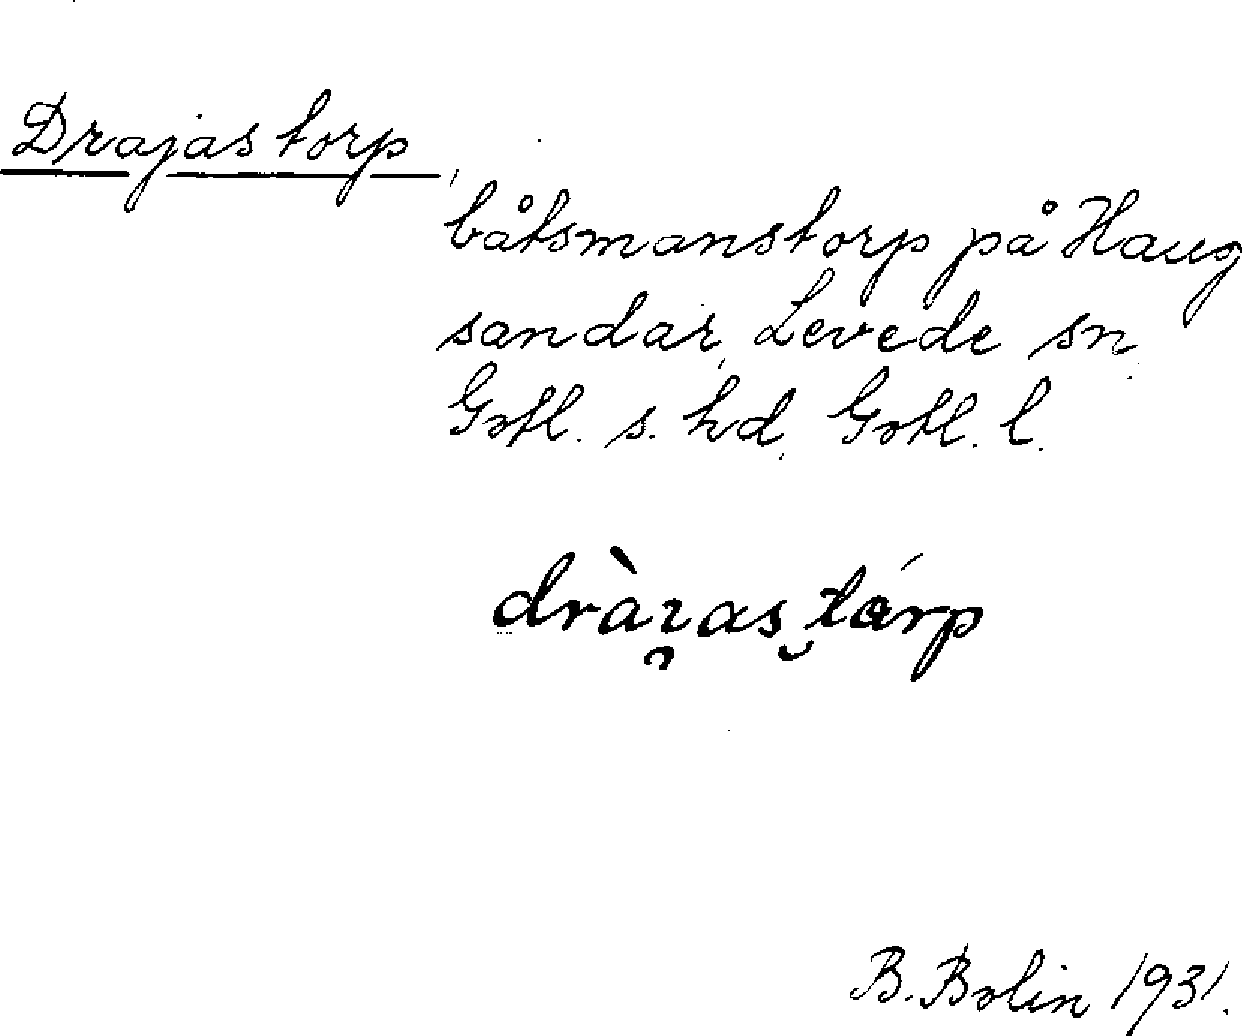 Drajastorp,
båtsmanstorp på Haug
sandar, Levede sn.
Gotl. s. hd, Gotl. l.
B. Bolin 1931.